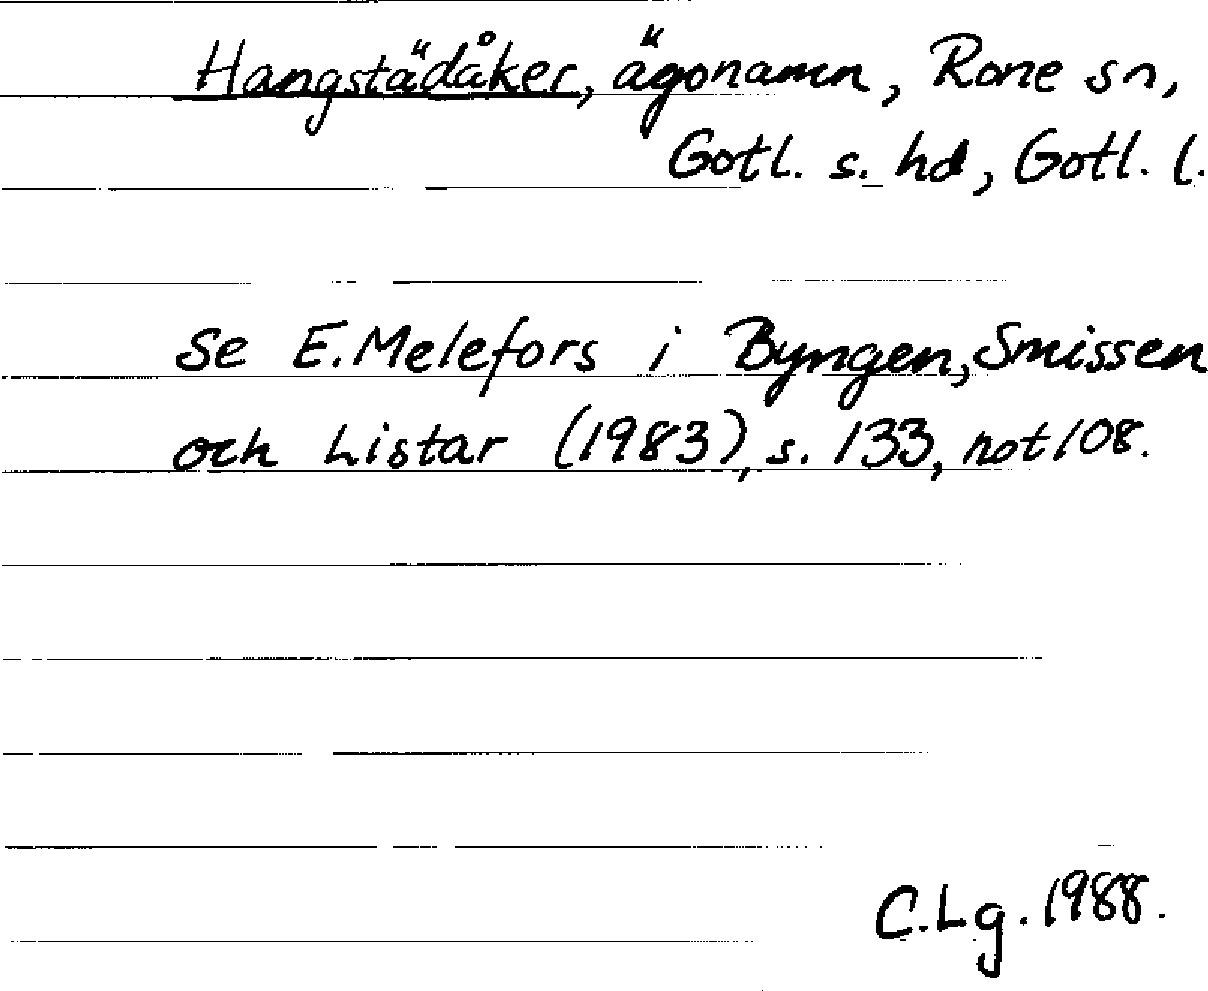 Hangstädåker, ägonamn, Rone sn,
Gotl. s. hd, Gotl. l.
Se E. Melefors i Byngen, Smissen
och Listar (1983), s. 133, not 108.
C. Lg. 1988.